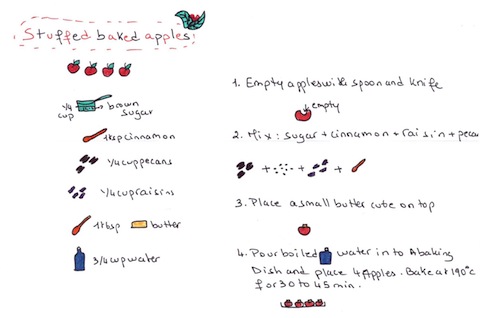 Stuffed baked apples
1/4 cup brown sugar
1 tsp cinnamon
1/4 cup pecans
1/4 cup raisins
1 tbsp butter
3/4 cup water
1. Empty apples with spoon and knife
empty
2. Mix: sugar + cinnamon + raisin + pecan
+ + +
3. Place a small butter cube on top
4. Pour boiled water in to A baking
Dish and place 4 Apples. Bake at 190°c
for 30 to 45 min.